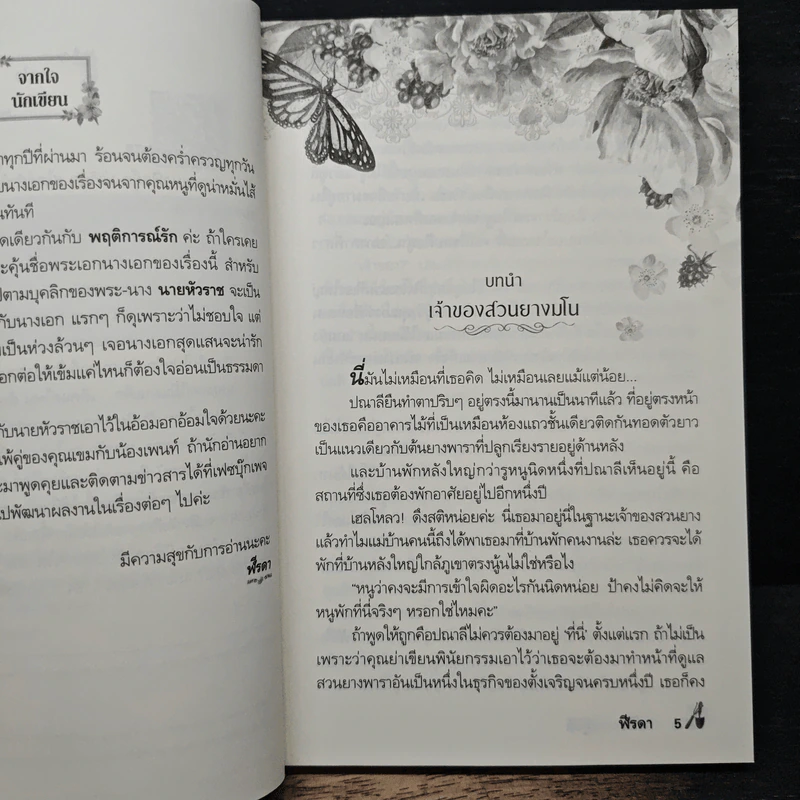 จากใจ
นักเขียน
ทุกปีที่ผ่านมา ร้อนจนต้องคร่ำครวญทุกวัน
นางเอกของเรื่องจนจากคุณหนูที่ดูน่าหมั่นไส้
ทันที
เดียวกันกับ พฤติการณ์รัก ค่ะ ถ้าใครเคย
คุ้นชื่อพระเอกนางเอกของเรื่องนี้ สำหรับ
ตามบุคลิกของพระ-นาง นายหัวราช จะเป็น
กับนางเอก แรกๆ ก็ดุเพราะว่าไม่ชอบใจ แต่
เป็นห่วงล้วนๆ เจอนางเอกสุดแสนจะน่ารัก
ต่อให้เข้มแค่ไหนก็ต้องใจอ่อนเป็นธรรมดา
กับนายหัวราชเอาไว้ในอ้อมอกอ้อมใจด้วยนะคะ
คู่ของคุณเขมกับน้องเพนท์ ถ้านักอ่านอยาก
มาพูดคุยและติดตามข่าวสารได้ที่เฟซบุ๊กเพจ
ไปพัฒนาผลงานในเรื่องต่อๆ ไปค่ะ
มีความสุขกับการอ่านนะคะ
ฟีรดา
บทนำ
เจ้าของสวนยางมโน
นี่มันไม่เหมือนที่เธอคิด ไม่เหมือนเลยแม้แต่น้อย...
ปณาลียืนทำตาปริบๆ อยู่ตรงนี้มานานเป็นนาทีแล้ว ที่อยู่ตรงหน้า
ของเธอคืออาคารไม้ที่เป็นเหมือนห้องแถวชั้นเดียวติดกันทอดตัวยาว
เป็นแนวเดียวกับต้นยางพาราที่ปลูกเรียงรายอยู่ด้านหลัง
และบ้านพักหลังใหญ่กว่ารูหนูนิดหนึ่งที่ปณาลีเห็นอยู่นี้ คือ
สถานที่ซึ่งเธอต้องพักอาศัยอยู่ไปอีกหนึ่งปี
เฮลโหลว! ดึงสติหน่อยค่ะ นี่เธอมาอยู่นี่ในฐานะเจ้าของสวนยาง
แล้วทำไมแม่บ้านคนนี้ถึงได้พาเธอมาที่บ้านพักคนงานล่ะ เธอควรจะได้
พักที่บ้านหลังใหญ่ใกล้ภูเขาตรงนู้นไม่ใช่หรือไง
“หนูว่าคงจะมีการเข้าใจผิดอะไรกันนิดหน่อย ป้าคงไม่คิดจะให้
หนูพักที่นี่จริงๆ หรอกใช่ไหมคะ”
ถ้าพูดให้ถูกคือปณาลีไม่ควรต้องมาอยู่ ‘ที่นี่’ ตั้งแต่แรก ถ้าไม่เป็น
เพราะว่าคุณย่าเขียนพินัยกรรมเอาไว้ว่าเธอจะต้องมาทำหน้าที่ดูแล
สวนยางพาราอันเป็นหนึ่งในธุรกิจของตั้งเจริญจนครบหนึ่งปี เธอก็คง
ฟีรดา 5